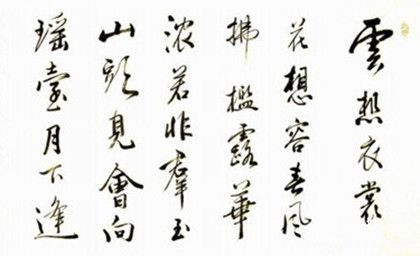 雲想衣裳
花想容春风
拂檻露華
浓若非羣玉
山頭見會向
瑶臺月下逢